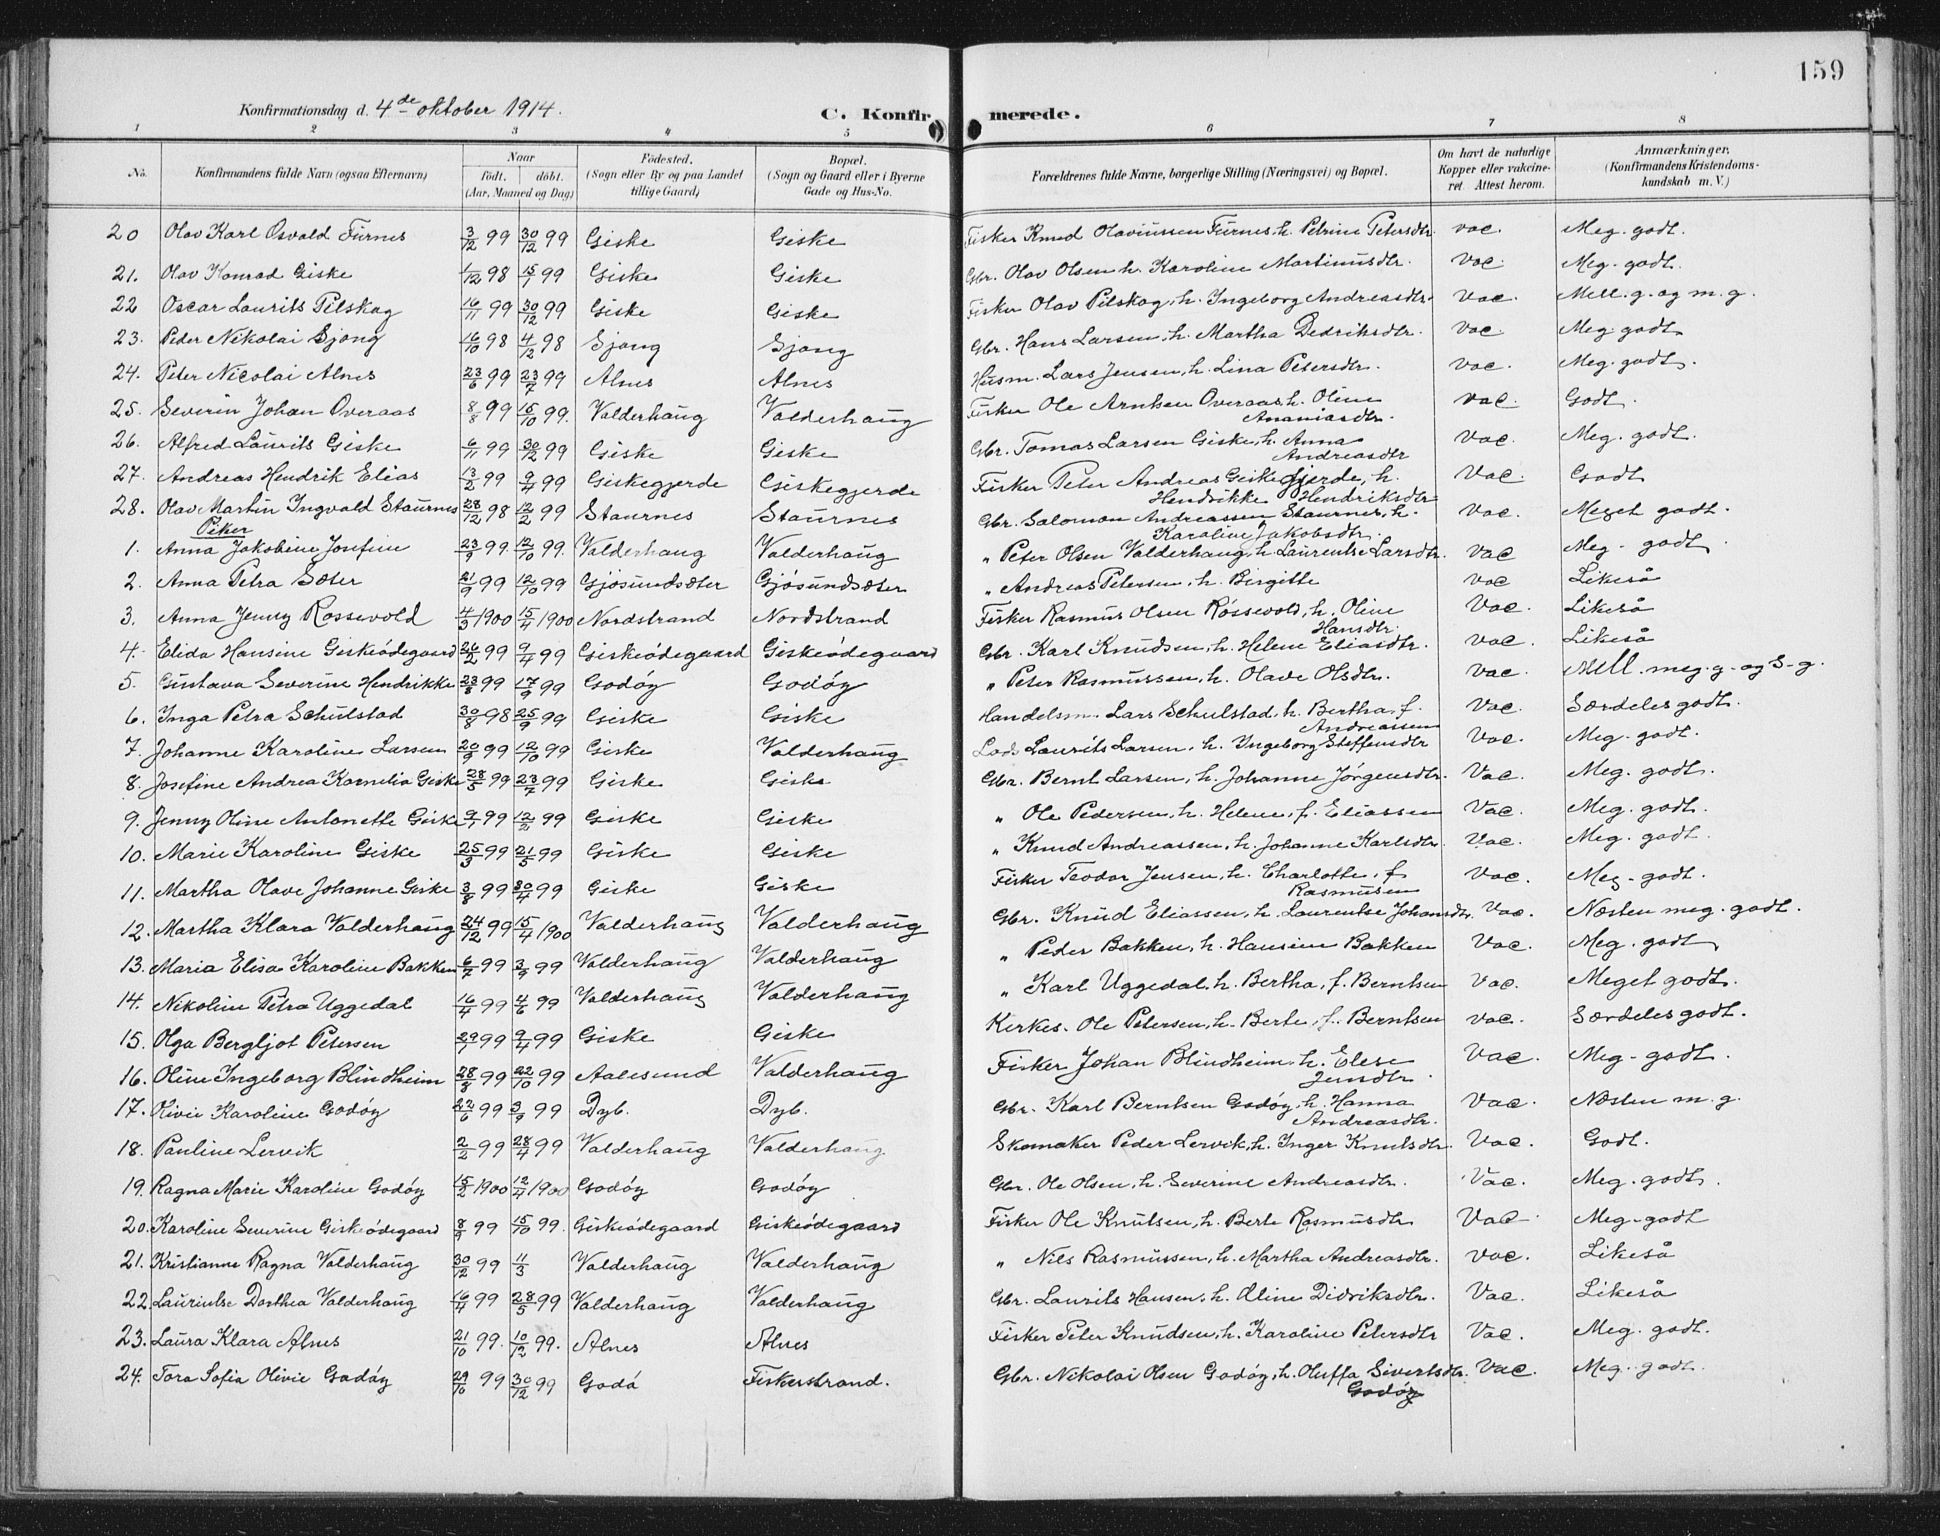 159
Konfirmationsdag d. 4de oktober 1914.
C. Konfirmerede.
1 2 3 4 5 6 7 8
No. Konfirmandens fulde Navn (ogsaa Efternavn) Naar født. døbt. (Aar, Maaned og Dag) Fødested. (Sogn eller By og paa Landet tillige Gaard) Bopæl. (Sogn og Gaard eller i Byerne Gade og Hus-No. Forældrenes fulde Navne, borgerlige Stilling (Næringsvei) og Bopæl. Om havt de naturlige Kopper eller vakcineret. Attest herom. Anmærkninger, (Konfirmandens Kristendomskundskab m. V.)
20 Olav Karl Osvald Furnes 3/12 99 30/12 99 Giske Giske Fisker Knud Olaviussen Furnes, h. Petrine Petersdtr. vac. Meg. godt.
21. Olav Konrad Giske 1/12 98 15/1 99 Giske Giske Gbr. Olav Olsen h. Karoline Martinusdtr. Vac. Meg. godt.
22 Oscar Laurits Pilskog 16/11 99 30/12 99 Giske Giske Fisker Olav Pilskog, h. Ingeborg Andreasdtr. Vac. Mell. g. og m. g.
23. Peder Nikolai Gjong 16/10 98 4/12 98 Gjong Gjong Gbr. Hans Larsen, h. Martha Dedriksdtr. Vac. Meg. godt
24. Peter Nicolai Alnes 23/6 99 23/7 99 Alnes Alnes Husm. Lars Jensen, h. Lina Petersdtr. vac. Meg. godt.
25. Severin Johan Overaas 8/8 99 15/10 99. Valderhaug Valderhaug Fisker Ole Arntsen Overaas h. Oline Ananiasdtr. vac. Godt.
26. Alfred Laurits Giske 6/11 99 30/12 99 Giske Giske Gbr. Tomas Larsen Giske, h. Anna Andreasdtr Vac. Meg. godt.
27. Andreas Hendrik Elias 13/2 99 9/4 99 Giskegjerde Giskegjerde Fisker Peter Andreas Giskegjerde, h. Hendrikke Hendriksdtr Vac. Godt
28. Olav Martin Ingvald Staurnes 28/12 98 12/2 99 Staurnes Staurnes Gbr. Salomon Andreassen Staurnes, h. Karoline Jakobsdtr. Vac. Meget godt.
Piker
1. Anna Jakobine Josefine 23/9 99. 12/10 99. Valderhaug Valderhaug " Peter Olsen Valderhaug, h. Laurentse Larsdtr. vac Meg. godt
2. Anna Petra Sæter 21/9 99 12/10 99 Gjøsundsæter Gjøsundsæter " Andreas Petersen, h. Birgitte vac Likeså
3. Anna Jenny Rossevold 4/3 1900 15/4 1900 Nordstrand Nordstrand Fisker Rasmus Olsen Røssevold, h. Oline Hansdtr. Vac. Likeså
4. Elida Hansine Giskeødegaard 26/2 99 9/4 99 Giskeødegaard Giskeødegaard Gbr. Karl Knudsen, h. Helene Eliasdtr. vac. Likeså
5. Gustava Severine Hendrikke 23/8 99 17/9 99 Godøy Godøy " Peter Rasmussen, h. Olave Olsdtr. vac. Mell. meg. g. og s. g.
6. Inga Petra Schulstad 30/8 98 25/9 99 Giske Giske Handelsm. Lars Schulstad, h. Bertha, f. Andreassen Vac. Særdeles godt.
7. Johanne Karoline Larsen 20/9 99 12/10 99 Giske Valderhaug Lods Laurits Larsen, h. Ingeborg Steffensdtr Vac. Meg. godt.
8. Josefine Andrea Kornelia Giske 28/5 99 23/7 99 Giske Giske Gbr. Bernt Larsen, h. Johanne Jørgensdtr. Vac. Meg. godt.
9. Jenny Oline Antonette Giske 9/1 99 12/2 99 Giske Giske " Ole Pedersen, h. Helene, f. Eliassen Vac. Meg. godt.
10. Marie Karoline Giske 25/3 99 21/5 99 Giske Giske " Knud Andreassen, h. Johanne Karlsdtr. Vac. Meg. godt
11. Martha Olave Johanne Giske 3/8 99 30/4 99 Giske Giske Fisker Teodor Jensen, h. Charlotte, f. Rasmusen Vac. Meg. godt.
12. Martha Klara Valderhaug 24/12 99 15/4 1900 Valderhaug Valderhaug Gbr. Knud Eliassen, h. Laurentse Johansdtr. Vac. Næsten meg. godt.
13. Maria Elisa Karoline Bakken 6/7 99 3/9 99 Valderhaug Valderhaug " Peder Bakken, h. Hansine Bakken Vac. Meg. godt
14. Nikoline Petra Uggedal 16/4 99 4/6 99 Valderhaug Valderhaug " Karl Uggedal, h. Bertha, f. Berntsen Vac. Meget godt.
15. Olga Bergljot Petersen 29/1 99 9/4 99 Giske Giske Kirkes. Ole Petersen, h. Berte, f. Berntsen vac. Særdeles godt.
16. Oline Ingeborg Blindheim 28/8 99 22/10 99 Aalesund Valderhaug Fisker Johan Blindheim, h. Elese Jensdtr. Vac. Meg. godt.
17. Oivie Karoline Godøy 22/6 99 3/9 99 Dyb. Dyb. Gbr. Karl Berntsen Godøy, h. Hanna Andreasdtr. Vac. Næsten m. g.
18. Pauline Lervik 2/2 99 28/4 99 Valderhaug Valderhaug Skomaker Peder Lervik, h. Inger Knutsdtr. Vac. Godt.
19. Ragna Marie Karoline Godøy 15/2 1900 12/4 1900 Godøy Godøy Gbr. Ole Olsen, h. Severine Andreasdtr. Vac. Meg. godt.
20. Karoline Severine Giskeødegaard 8/9 99 15/10 99. Giskeødegaard Giskeødegaard Fisker Ole Knutsen, h. Berte Rasmusdtr Vac Meg. godt
21. Kristianne Ragna Valderhaug 30/12 99 11/3 Valderhaug Valderhaug " Nils Rasmussen, h. Martha Andreasdtr. vac. Likeså
22. Laurintse Dorthea Valderhaug 16/4 99 28/5 99 Valderhaug Valderhaug Gbr. Laurits Hansen, h. Oline Didriksdtr. Vac. Likeså
23. Laura Klara Alnes 21/10 99. 10/12 99. Alnes Alnes Fisker Peter Knudsen, h. Karoline Petersdtr Vac. Meg. godt.
24. Tora Sofia Olivie Godøy 29/10 99 30/12 99 Godø Fiskerstrand. Gbr. Nikolai Olsen Godøy, h. Oluffa Sivertsdtr. Godøy Vac. Meg. godt.